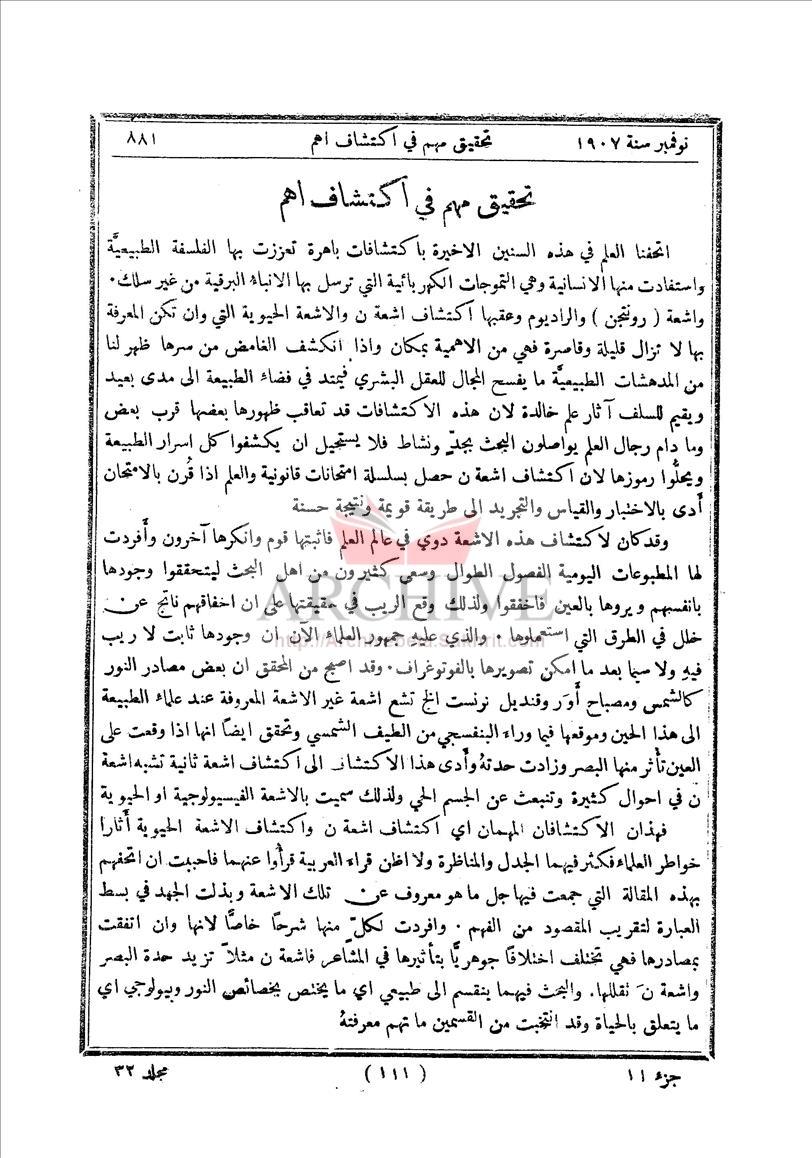 نوفمبر سنة ١٩٠٧ تحقيق مهم في اكتشاف اهم ٨٨١
تحقيق مهم في اكتشاف اهم
اتحفنا العلم في هذه السنين الاخيرة باكتشافات باهرة تعززت بها الفلسفة الطبيعيَّة
واستفادت منها الانسانية وهي التموجات الكهربائية التي ترسل بها الانباء البرقية من غير سلك .
واشعة ( رونتجن ) والراديوم وعقبها اكتشاف اشعة ن والاشعة الحيوية التي وان تكن المعرفة
بها لا تزال قليلة وقاصرة فهي من الاهمية بمكان واذا انكشف الغامض من سرها ظهر لنا
من المدهشات الطبيعيَّة ما يفسح المجال للعقل البشري فيمتد في فضاء الطبيعة الى مدى بعيد
ويقيم للسلف آثار علم خالدة لان هذه الاكتشافات قد تعاقب ظهورها بعضها قرب بعض
وما دام رجال العلم يواصلون البحث بجدٍّ ونشاط فلا يستحيل ان يكشفوا كل اسرار الطبيعة
ويحلُّوا رموزها لان اكتشاف اشعة ن حصل بسلسلة امتحانات قانونية والعلم اذا قُرن بالامتحان
أَدى بالاختبار والقياس والتجريد الى طريقة قويمة ونتيجة حسنة
وقد كان لاكتشاف هذه الاشعة دوي في عالم العلم فاثبتها قوم وانكرها آخرون وأَفردت
لها المطبوعات اليومية الفصول الطوال وسعى كثيرون من اهل البحث ليتحققوا وجودها
بانفسهم ويروها بالعين فاخفقوا ولذلك وقع الريب في حقيقتها على ان اخفاقهم ناتج عن
خلل في الطرق التي استعملوها . والذي عليه جمهور العلماء الآن ان وجودها ثابت لا ريب
فيهِ ولا سيما بعد ما امكن تصويرها بالفوتوغراف . وقد اصبح من المحقق ان بعض مصادر النور
كالشمس ومصباح أَوَر وقنديل نرنست الخ تشع اشعة غير الاشعة المعروفة عند علماء الطبيعة
الى هذا الحين وموقعها فيما وراء البنفسجي من الطيف الشمسي وتحقق ايضاً انها اذا وقعت على
العين تأثر منها البصر وزادت حدتهُ وأَدى هذا الاكتشاف الى اكتشاف اشعة ثانية تشبه اشعة
ن في احوال كثيرة وتنبعث عن الجسم الحي ولذلك سميت بالاشعة الفيسيولوجية او الحيوية
فهذان الاكتشافان المهمان اي اكتشاف اشعة ن واكتشاف الاشعة الحيوية أَثارا
خواطر العلماء فكثر فيهما الجدل والمناظرة ولا اظن قراء العربية قرأُوا عنهما فاحببت ان اتحفهم
بهذه المقالة التي جمعت فيها جل ما هو معروف عن تلك الاشعة وبذلت الجهد في بسط
العبارة لتقريب المقصود من الفهم . وافردت لكلٍّ منها شرحاً خاصًّا لانها وان اتفقت
بمصادرها فهي تختلف اختلافاً جوهريًّا بتأثيرها في المشاعر فاشعة ن مثلاً تزيد حدة البصر
واشعة نَ نقللها. والبحث فيهما ينقسم الى طبيعي اي ما يختص بخصائص النور وبيولوجي اي
ما يتعلق بالحياة وقد انتخبت من القسمين ما تهم معرفتهُ
جزء ١١ (١١١) مجلد ٣٢
ARCHIVE
http://Archivebeta.Sakhrit.com